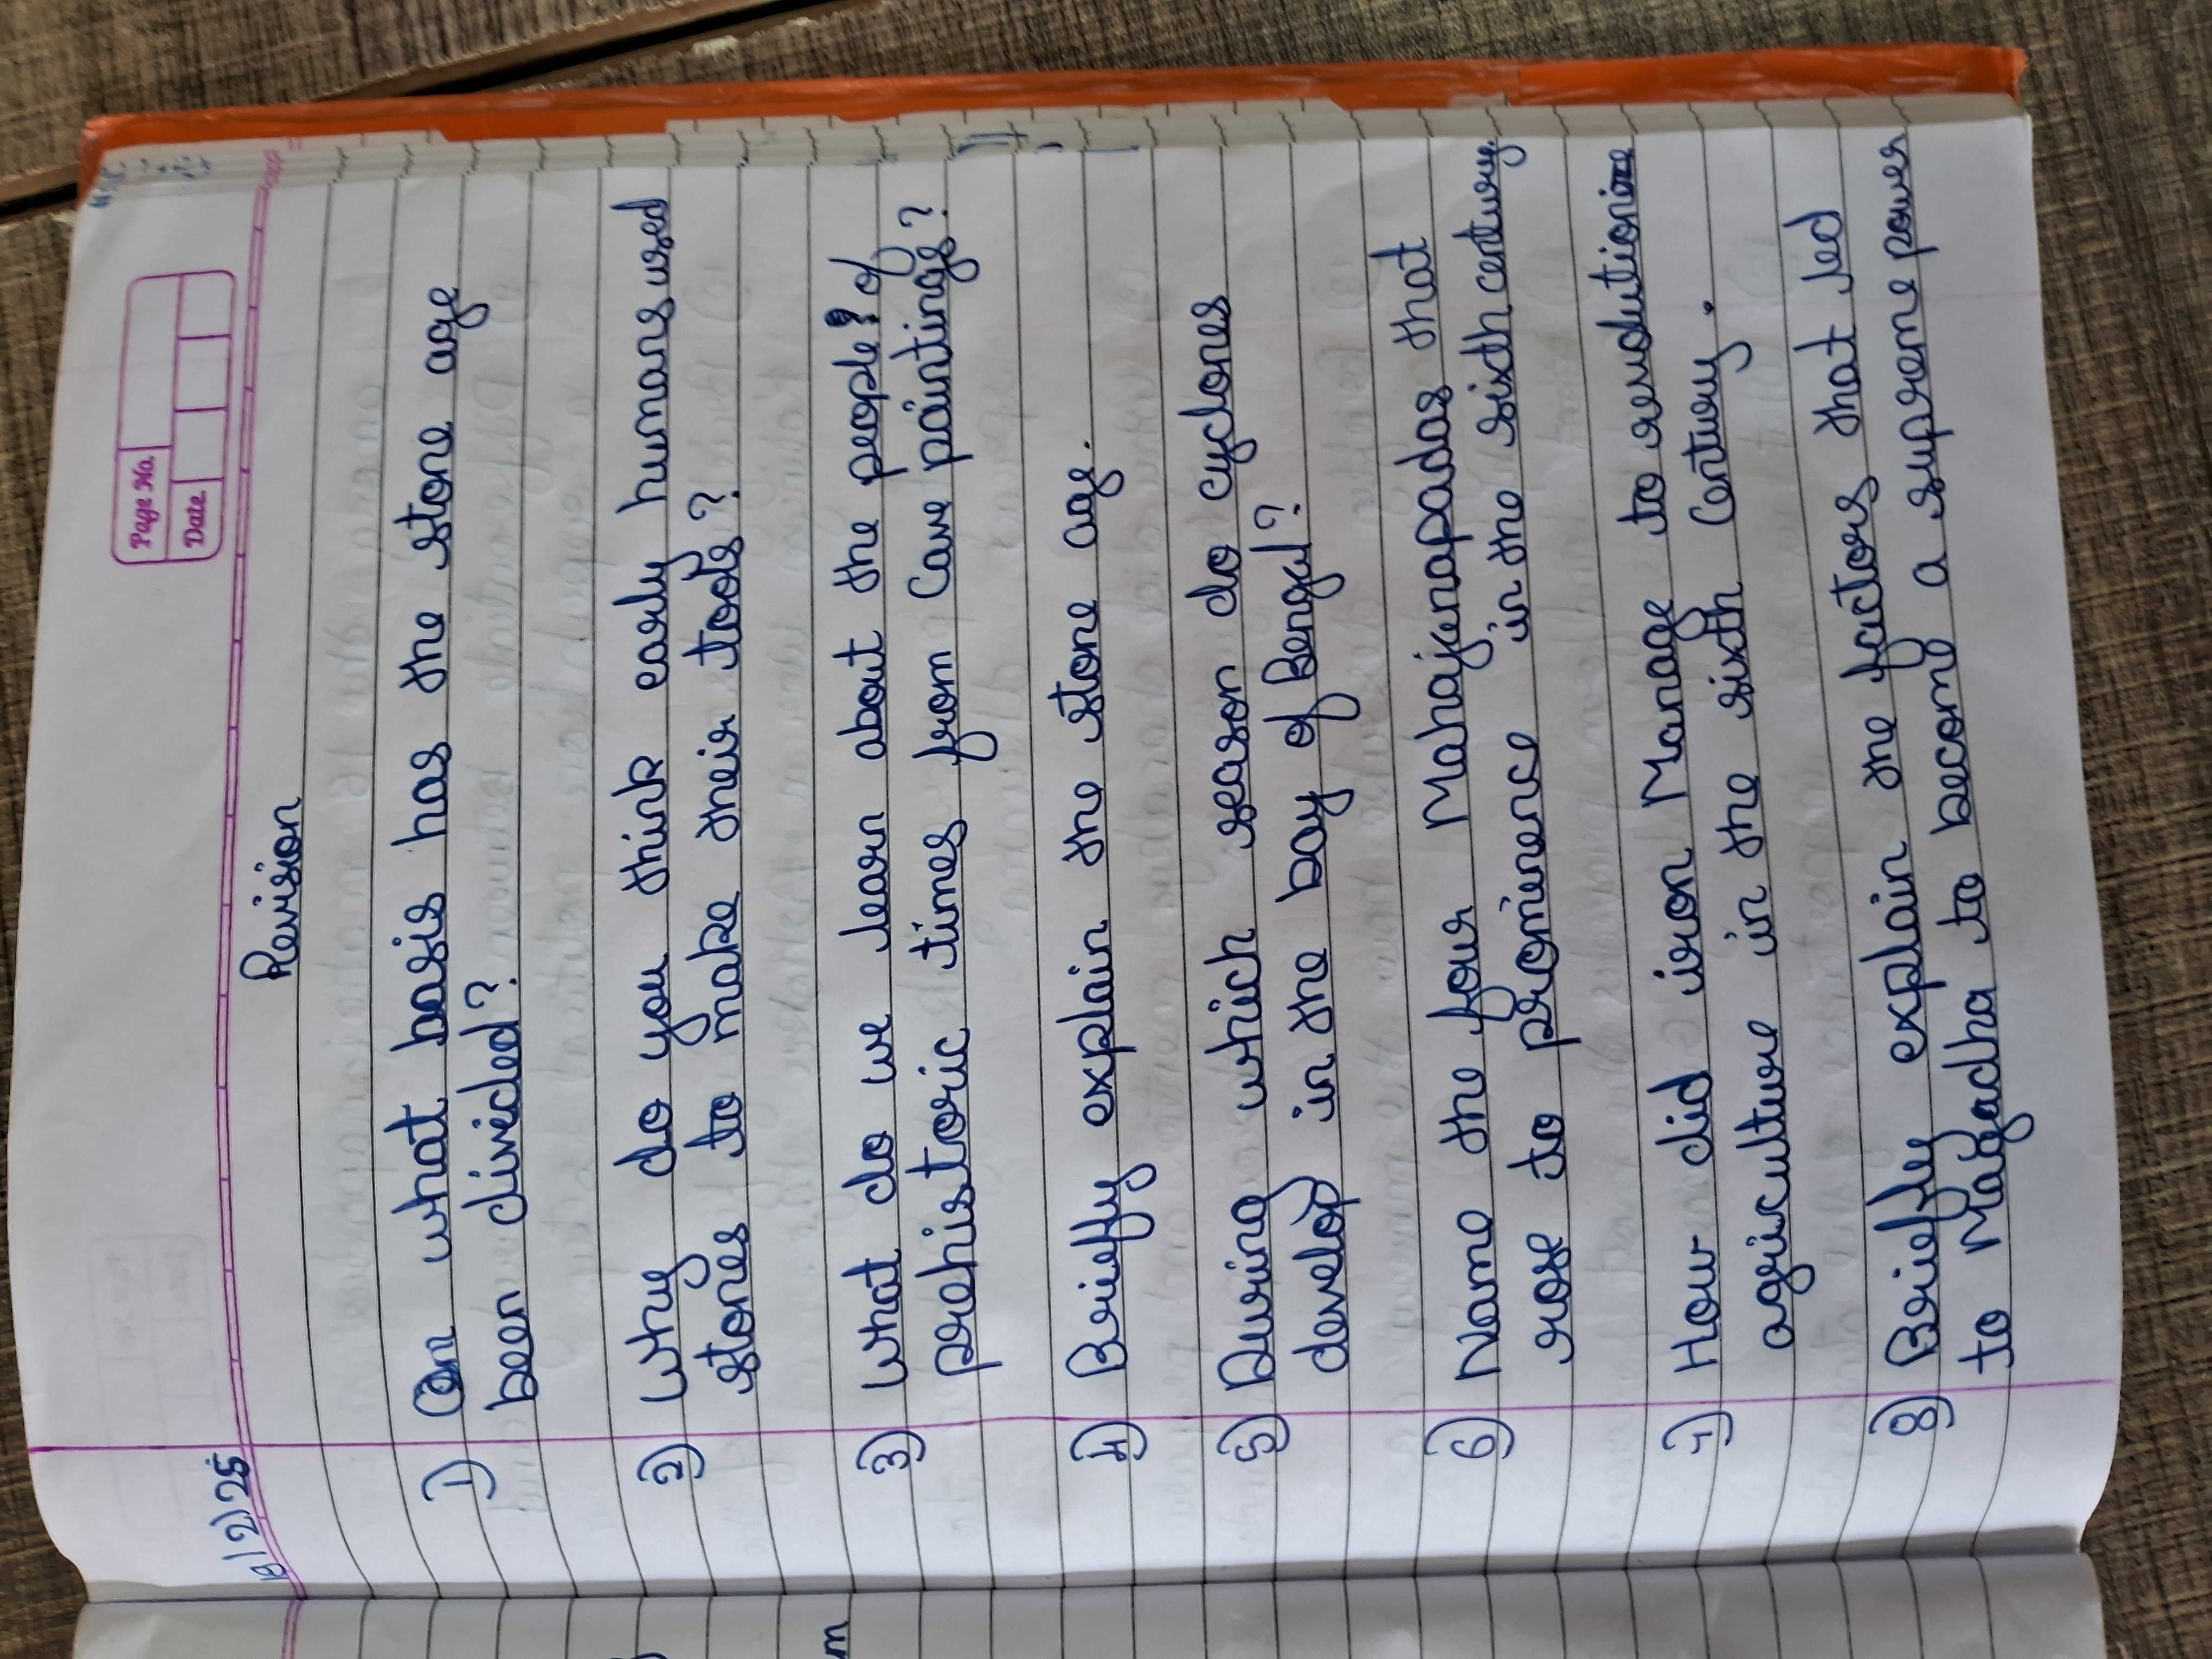 Page No.
Date
18/2/25
Revision
1) On what basis has the stone age
been divided?
2) Why do you think early humans used
stones to make their tools?
3) What do we learn about the people of
prehistoric times from Cave paintings?
4) Briefly explain the stone age.
5) During which season do cyclones
develop in the bay of Bengal?
6) Name the four Mahajanapadas that
rose to prominence in the sixth century.
7) How did iron Manage to revolutionize
agriculture in the sixth Century.
8) Briefly explain the factors that led
to Magadha to become a supreme power
m